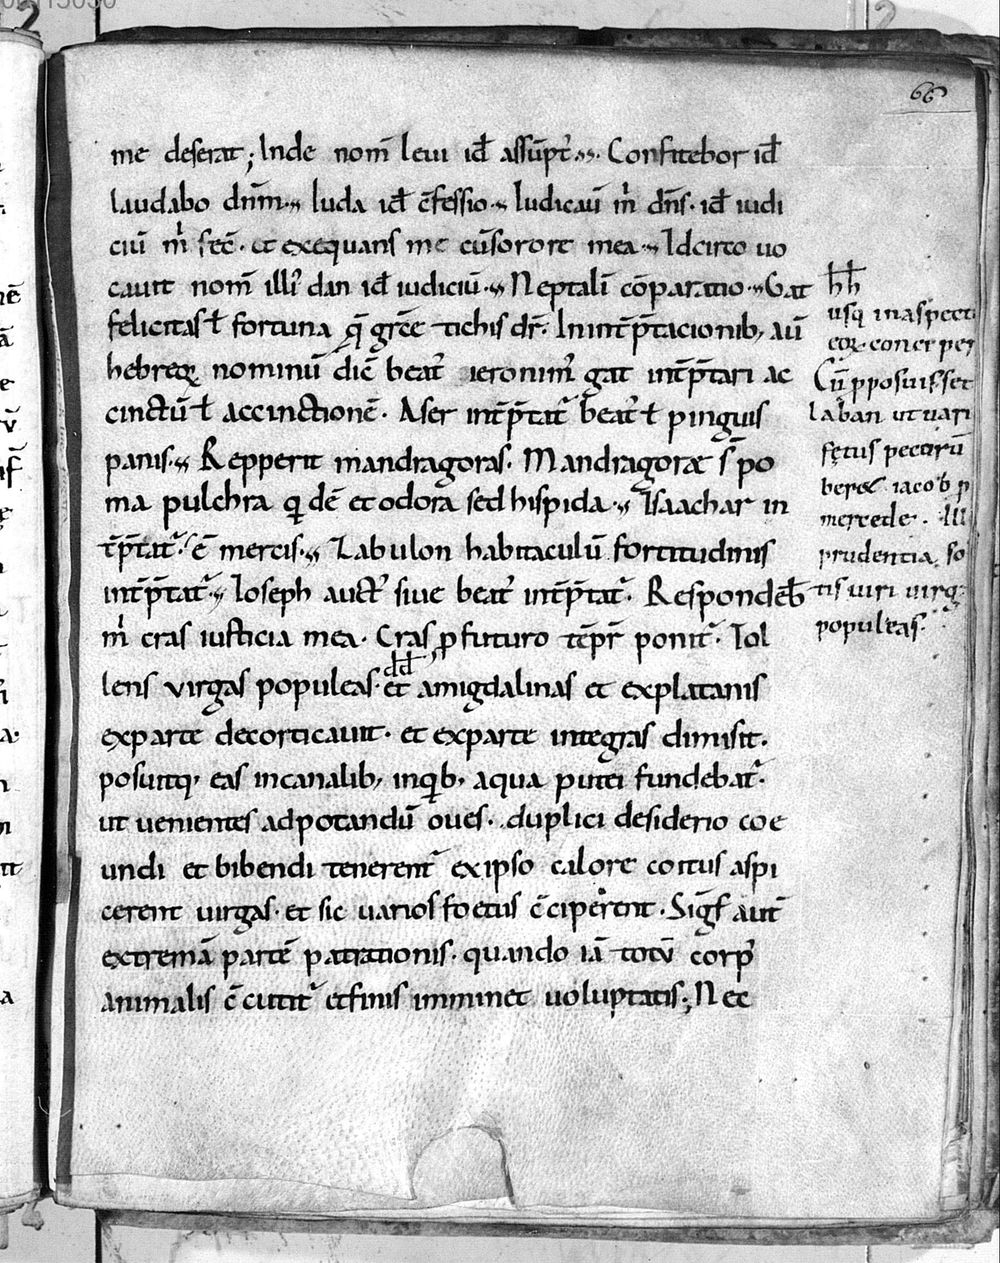 66
me deserat; Inde nom̄ leui id̄ assūpt᷒. Confitebor id̄
laudabo dn̄m. Iuda id̄ c̄fessio. Iudicau̅ m̍ dn̄s. id̄ iudi
ciū m̍ fec̄. et exequans me cūsorore mea. Idcirco uo
cauit nom̄ illi᷒ dan id̄ iudiciū. Neptalī cōparatio. Gat
felicitas ł fortuna q̄ grēe tichis dr̄. Inint̄p̄tacionib, aū
hebreoꝝ nominū dic̄ beat᷒ ieronim᷒ gat int̄p̄tari ac
cinctū ł accinctionē. Aser int̄p̄tat᷒ beat᷒ ł pinguis
panis. Repperit mandragoras. Mandragoræ s̄ po
ma pulchra q. dē et odora sed hispida. Isaachar in
t̄p̄tat᷒. ē mercis. Zabulon habitaculū fortitudinis
int̄p̄tat᷒. Ioseph auct᷒ siue beat᷒ int̄p̄tat᷒. Respondeb̄
m̍ cras iusticia mea. Cras ꝓ futuro tēpr̄ ponit᷒. Tol
lens virgas populeas. et amigdalinas et explatanis
exparte decorticauit. et exparte integras dimisit.
posuitq, eas incanalib, inqb, aqua putei fundebat᷒.
ut uenientes adpotandū oues. duplici desiderio coe
undi et bibendi tenerent᷒ exipso calore coitus aspi
cerent uirgas. et sic uarios foetus c̄ciperent. Sigf̄ aut̄
extremā partē patrationis. quando iā totū corp᷒
animalis c̄cutit᷒ et finis imminet uoluptatis; Nec
hh
usq inaspect
eoꝝ concrper
Cū pposuisset
laban ut uari
fętus pecorū
beret iacob p
mercede. Ill
prudentia. so
tis uiri uirg
populeas.
dd